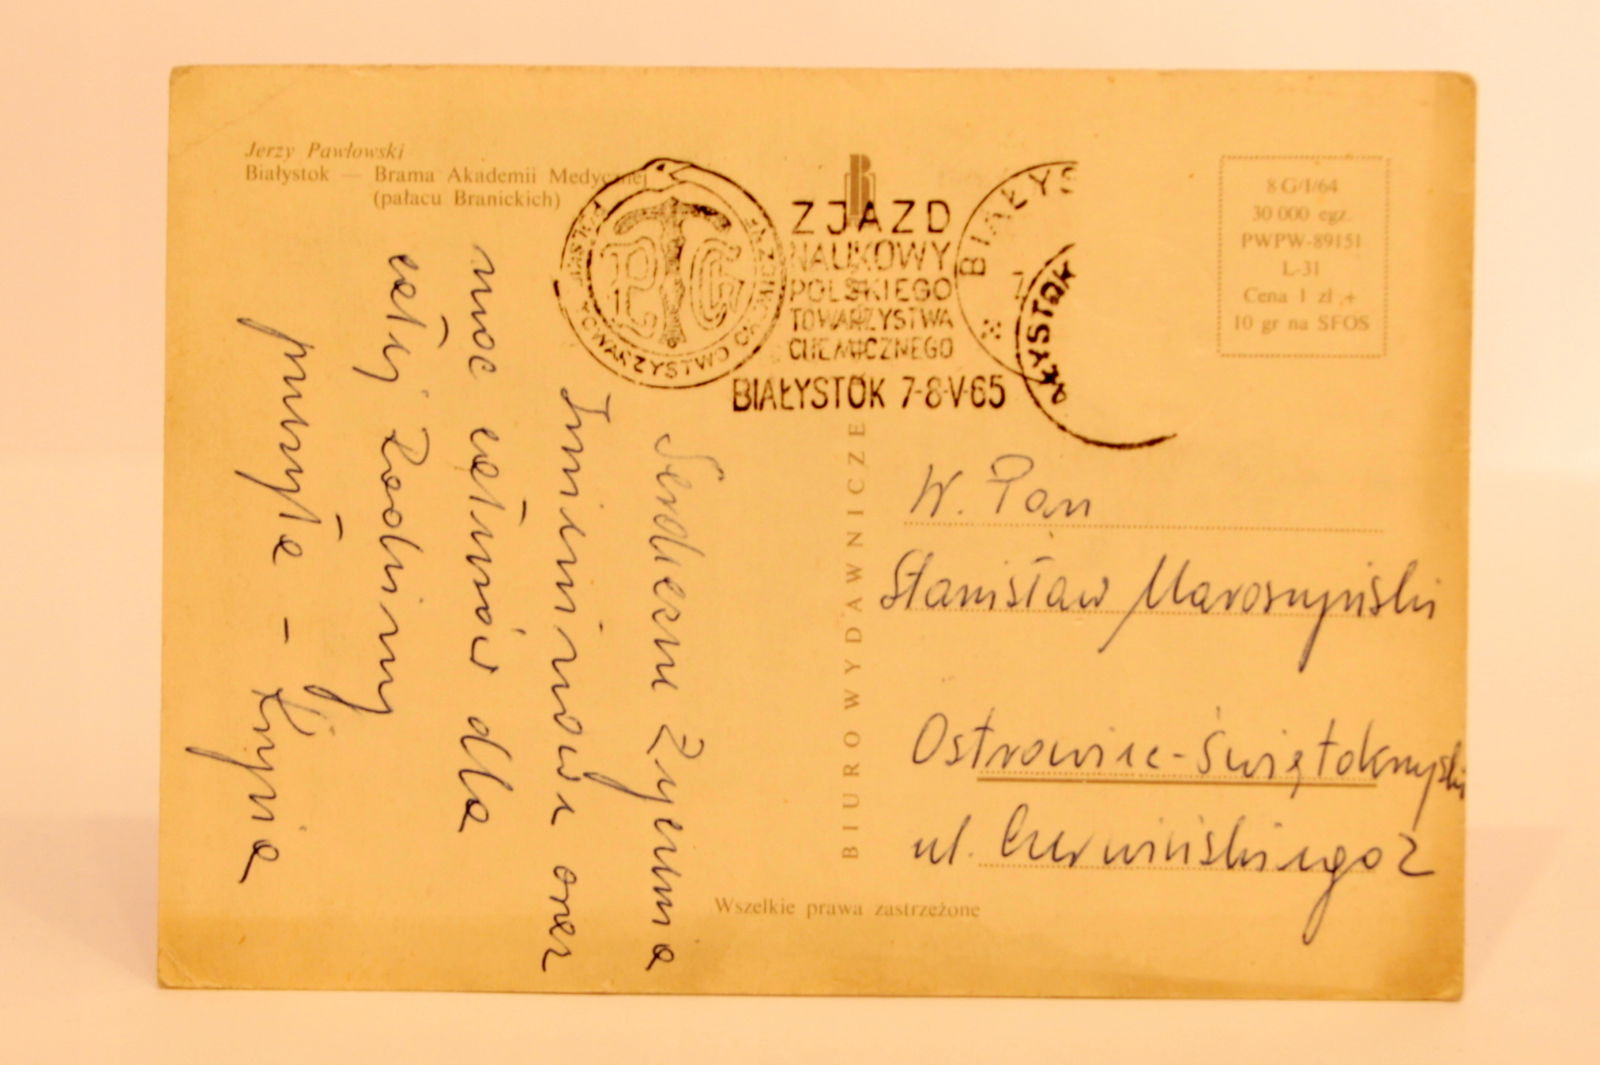 Jerzy Pawłowski
Białystok — Brama Akademii Medycznej
(pałacu Branickich)
POLSKIE TOWARZYSTWO CHEMICZNE
PTCH
ZJAZD
NAUKOWY
POLSKIEGO
TOWARZYSTWA
CHEMICZNEGO
BIAŁYSTOK 7-8-V-65
BIAŁYS
7
AŁYSTOK
8 G/I/64
30 000 egz.
PWPW-89151
L-31
Cena 1 zł +
10 gr na SFOS
Serdeczne życzenia
Imieninowe oraz
moc całusów dla
całej Rodziny
przesyła –
BIURO WYDAWNICZE
W. Pan
Stanisław Maroszyński
Ostrowiec-Świętokrzyski
ul. Czerwińskiego 2
Wszelkie prawa zastrzeżone